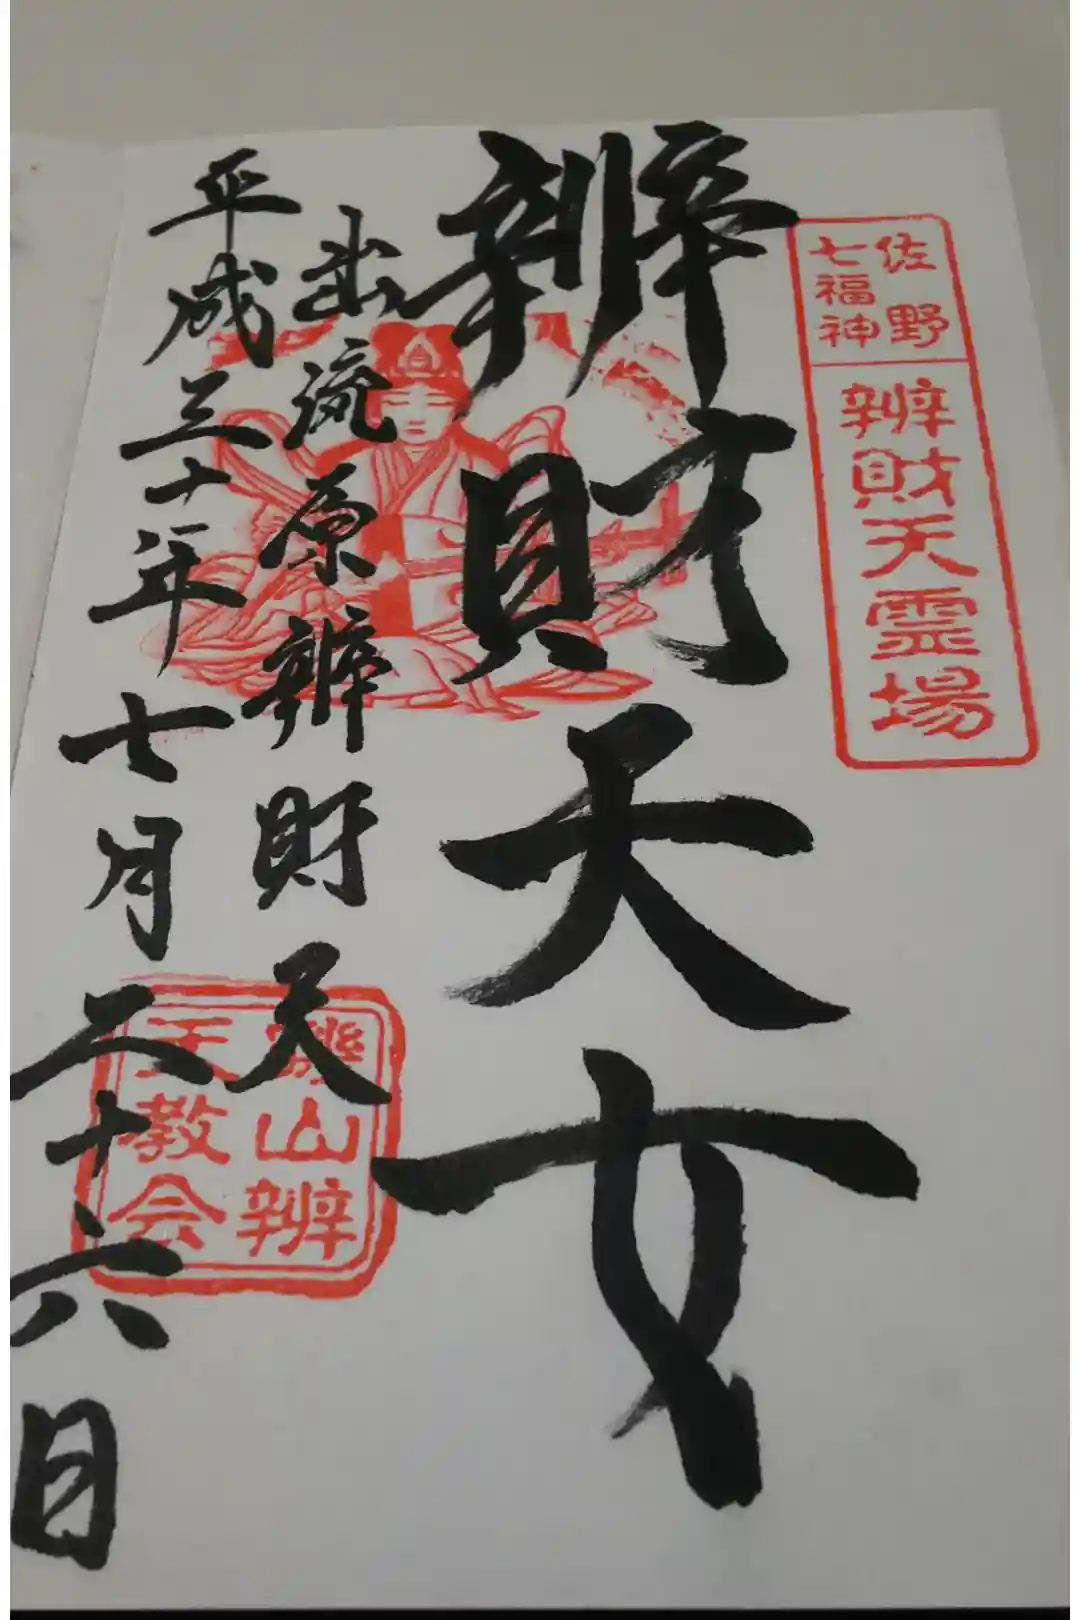 佐野
七福神
辨財天霊場
辨財天女
出流原辨財天
平成三十年七月二十六日
山辨
天教会